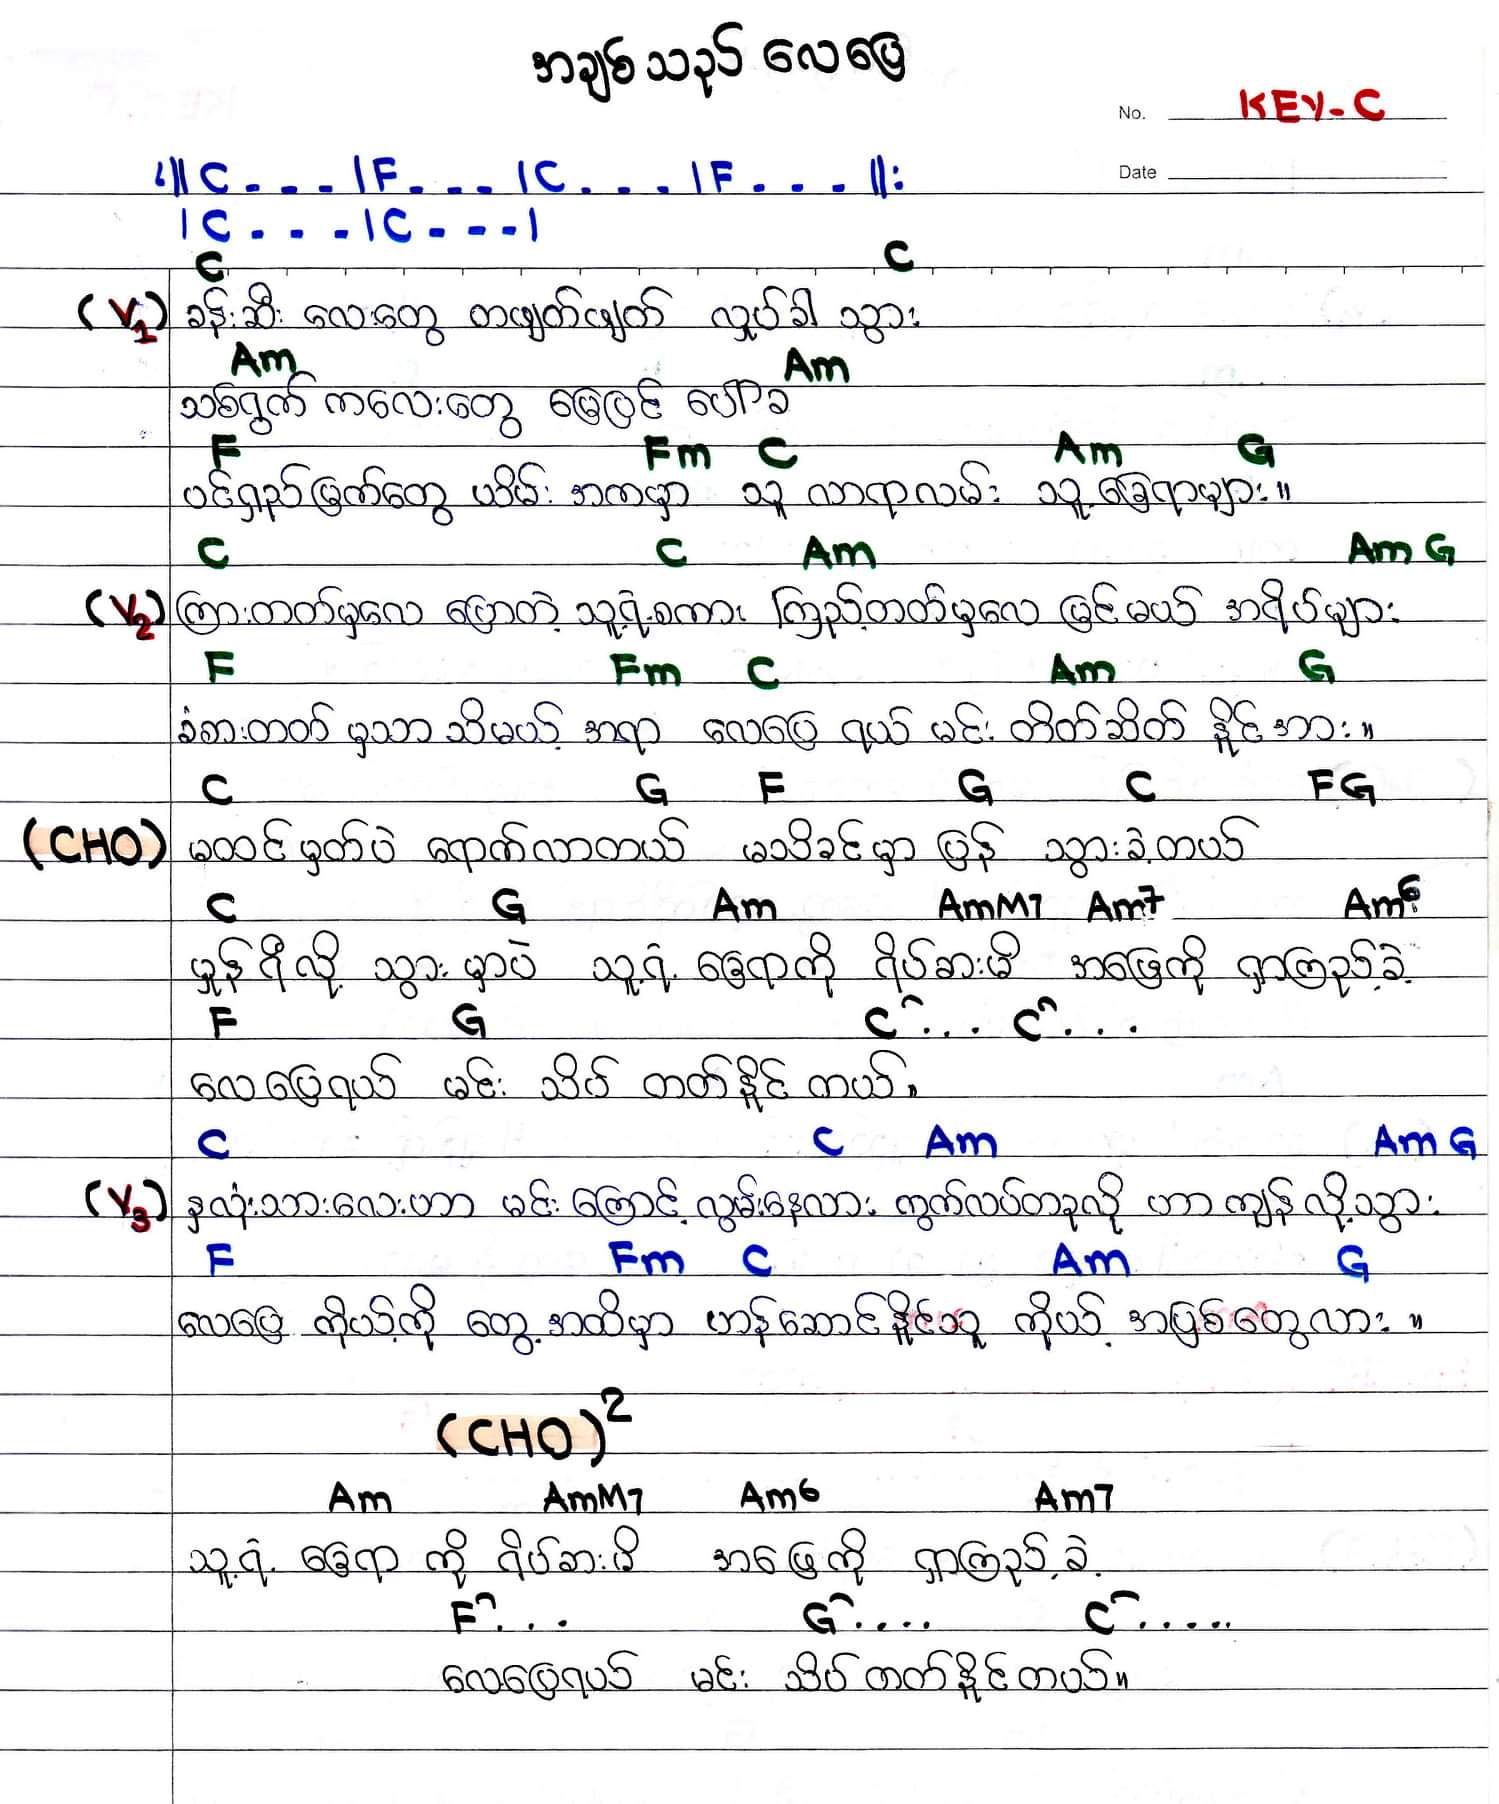 အချစ်သည် လေပြေ
No. KEY-C
Date
𝄆 C - - - | F - - - | C - - - | F - - - ‖:
| C - - - | C - - - |
C C
(V1) ခန်းဆီး လေးတွေ တဖျတ်ဖျတ် လှုပ်ခါ သွား
Am Am
သစ်ရွက် ကလေးတွေ မြေပြင် ပေါ်ခ
F Fm C Am G
ပင်ရှည်မြက်တွေ ယိမ်း အကမှာ သူ လာရာလမ်း သူ့ခြေရာများ။
C C Am Am G
(V2) ကြားတတ်မှလေ ပြောတဲ့ သူ့ရဲ့စကား ကြည့်တတ်မှလေ မြင်မယ် အရိပ်များ
F Fm C Am G
ခံစားတတ် မှသာ သိမယ့် အရာ လေပြေ ရယ် မင်း တိတ်ဆိတ် နိူင်အား။
C G F G C F G
(CHO) မထင်မှတ်ပဲ ရောက်လာတယ် မသိခင်မှာ ပြန် သွားခဲ့တယ်
C G Am AmM7 Am7 Am6
မှုန်ရီလို့ သွားမှာပဲ သူ့ရဲ့ ခြေရာကို ရိပ်ဆားမိ အဖြေကို ရှာကြည့်ခဲ့
F G C^... C^...
လေပြေရယ် မင်း သိပ် တတ်နိူင် တယ်။
C C Am Am G
(V3) နှလုံးသားလေးဟာ မင်း ကြောင့် လွမ်းနေလား ကွက်လပ်တခုလို ဟာ ကျန် လို့သွား
F Fm C Am G
လေပြေ ကိုယ့်ကို တွေ့အထိမှာ ဟန်ဆောင်နိူင်သူ ကိုယ့် အပြစ်တွေလား ။
(CHO)²
Am AmM7 Am6 Am7
သူ့ရဲ့ ခြေရာ ကို ရိပ်ဆားမိ အဖြေကို ရှာကြည့်ခဲ့
F^... G^.... C^......
လေပြေရယ် မင်း သိပ်တတ်နိူင်တယ်။